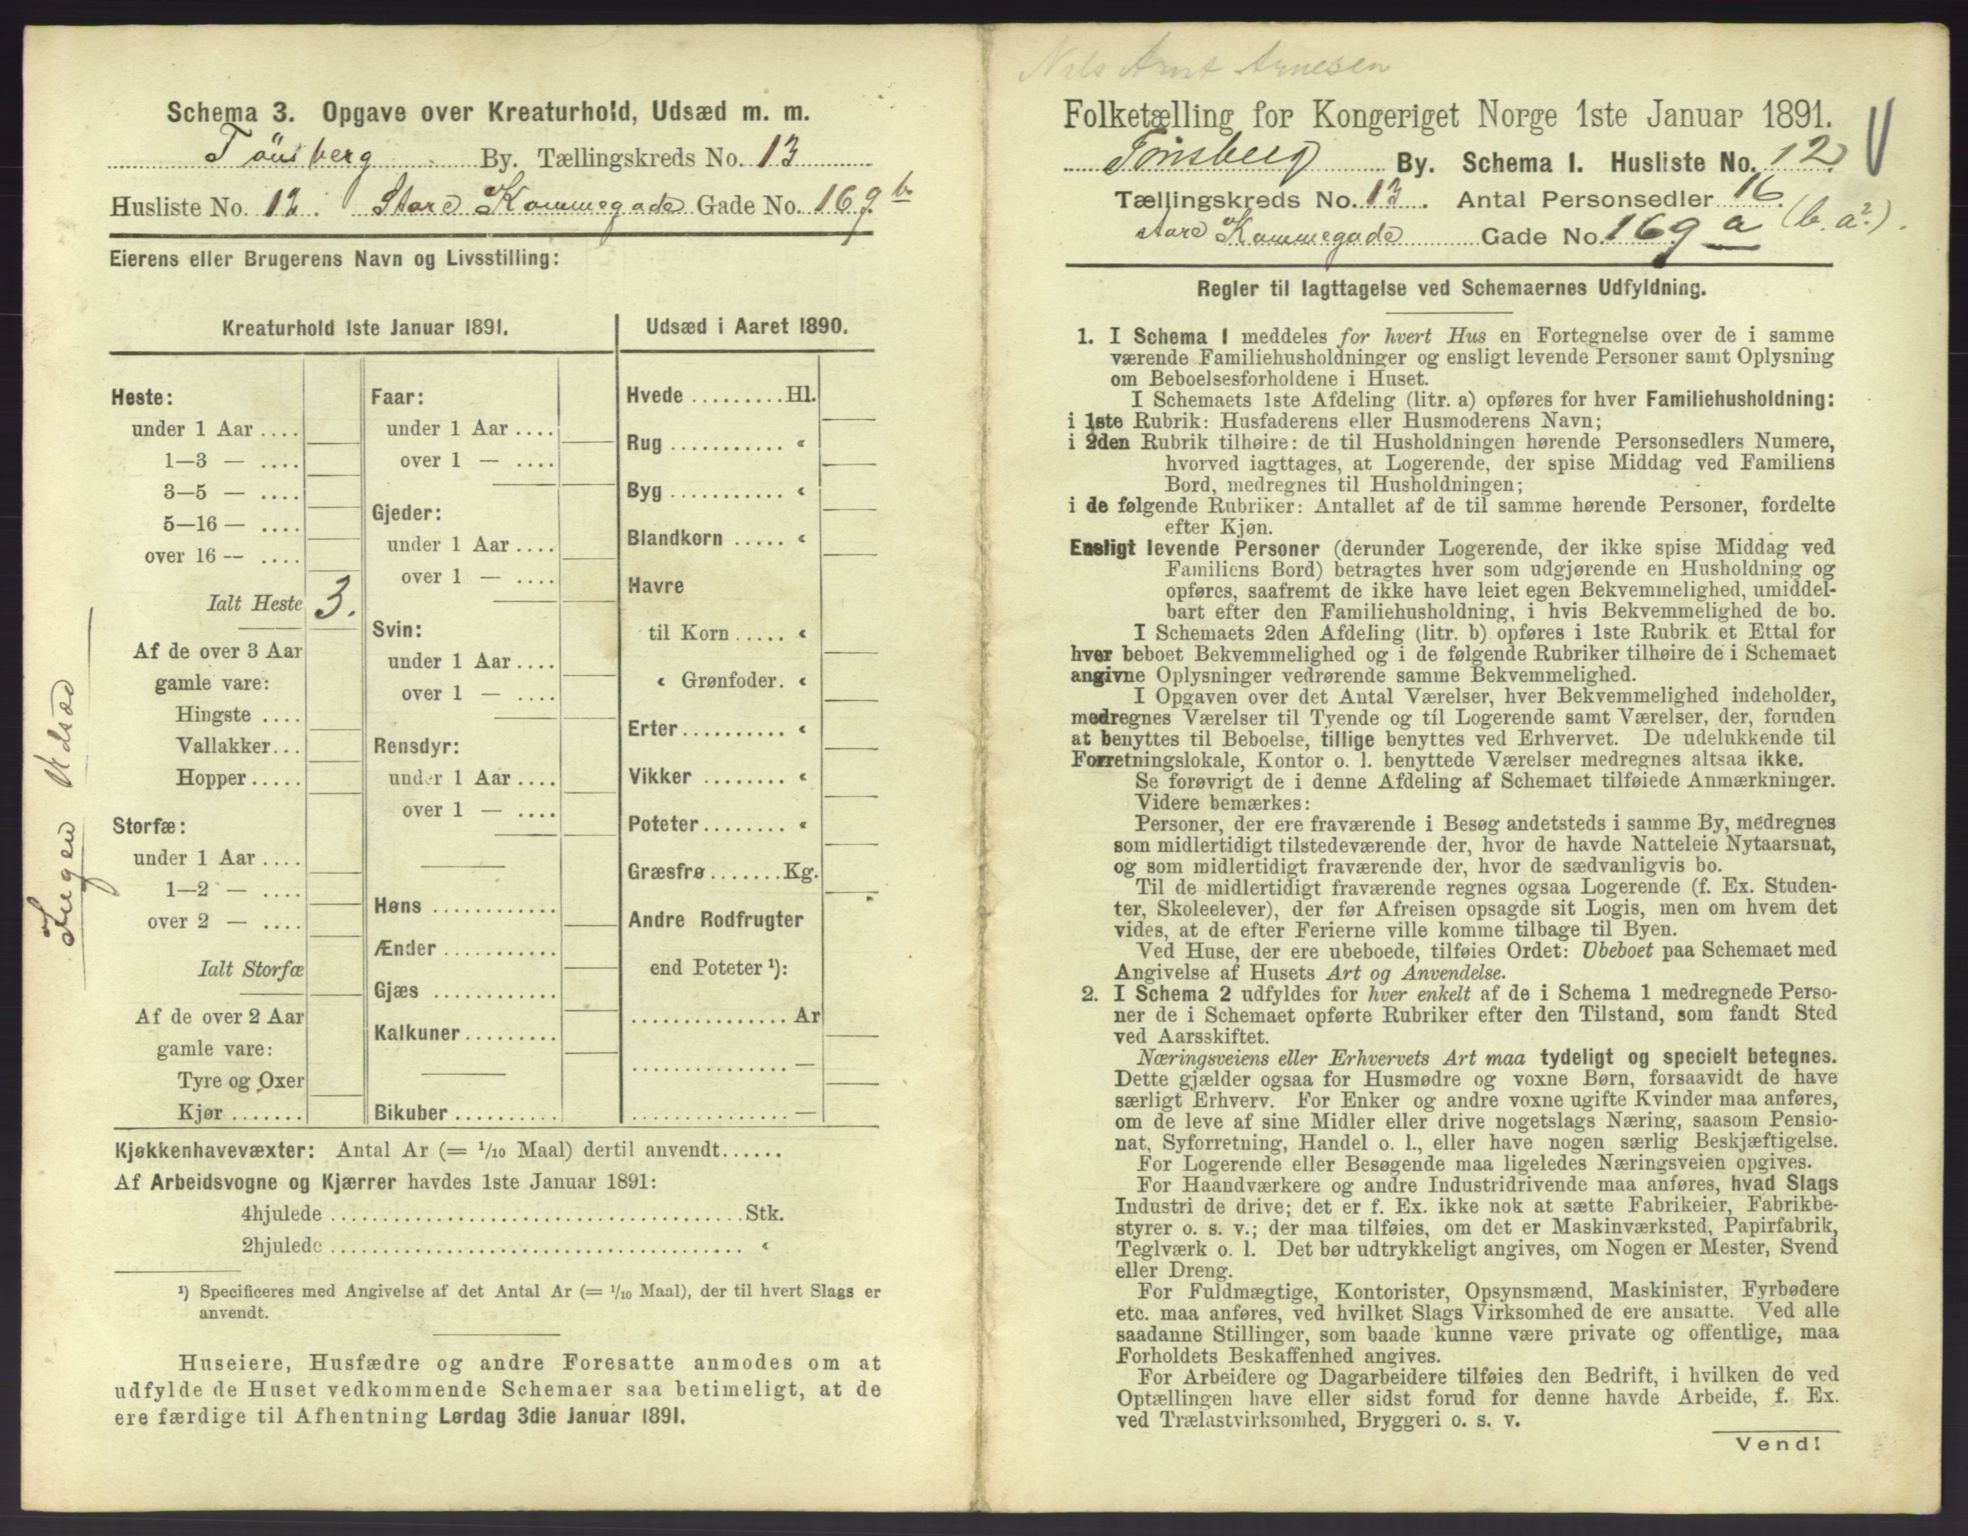 Schema 3. Opgave over Kreaturhold, Udsæd m. m.
Tönsberg By. Tællingskreds No. 13
Husliste No. 12. Store Kammegade Gade No. 169 b
Eierens eller Brugerens Navn og Livsstilling:
Kreaturhold 1ste Januar 1891.
Heste:
under 1 Aar ....
1—3 — ....
3—5 — ....
5—16 — ....
over 16 — ....
Ialt Heste 3.
Af de over 3 Aar
gamle vare:
Hingste ....
Vallakker...
Hopper.....
Storfæ:
under 1 Aar ....
1—2 — ....
over 2 — ....
Ialt Storfæ
Af de over 2 Aar
gamle vare:
Tyre og Oxer
Kjør.......
Faar:
under 1 Aar ....
over 1 — ....
Gjeder:
under 1 Aar ....
over 1 — ....
Svin:
under 1 Aar ....
over 1 — ....
Rensdyr:
under 1 Aar ....
over 1 — ....
Høns ............
Ænder ...........
Gjæs ............
Kalkuner.........
Bikuber..........
Udsæd i Aaret 1890.
Hvede .........Hl.
Rug ........... «
Byg ........... «
Blandkorn ..... «
Havre
til Korn ..... «
« Grønfoder. «
Erter.......... «
Vikker ........ «
Poteter........ «
Græsfrø.......Kg.
Andre Rodfrugter
end Poteter ¹):
............... Ar
............... —
............... —
Kjøkkenhavevæxter: Antal Ar (= 1/10 Maal) dertil anvendt......
Af Arbeidsvogne og Kjærrer havdes 1ste Januar 1891:
4hjulede ........................................Stk.
2hjulede ........................................ «
¹) Specificeres med Angivelse af det Antal Ar (= 1/10 Maal), der til hvert Slags er
anvendt.
Huseiere, Husfædre og andre Foresatte anmodes om at
udfylde de Huset vedkommende Schemaer saa betimeligt, at de
ere færdige til Afhentning Lørdag 3die Januar 1891.
Ingen Udsæd
Nils Arnt Arnesen
Folketælling for Kongeriget Norge 1ste Januar 1891.
Tönsberg By. Schema 1. Husliste No. 12.
Tællingskreds No. 13. Antal Personsedler 16.
store Kammegade Gade No. 169 a (b. a?).
Regler til Iagttagelse ved Schemaernes Udfyldning.
1. I Schema 1 meddeles for hvert Hus en Fortegnelse over de i samme
værende Familiehusholdninger og ensligt levende Personer samt Oplysning
om Beboelsesforholdene i Huset.
I Schemaets 1ste Afdeling (litr. a) opføres for hver Familiehusholdning:
i 1ste Rubrik: Husfaderens eller Husmoderens Navn;
i 2den Rubrik tilhøire: de til Husholdningen hørende Personsedlers Numere,
hvorved iagttages, at Logerende, der spise Middag ved Familiens
Bord, medregnes til Husholdningen;
i de følgende Rubriker: Antallet af de til samme hørende Personer, fordelte
efter Kjøn.
Ensligt levende Personer (derunder Logerende, der ikke spise Middag ved
Familiens Bord) betragtes hver som udgjørende en Husholdning og
opføres, saafremt de ikke have leiet egen Bekvemmelighed, umiddel-
bart efter den Familiehusholdning, i hvis Bekvemmelighed de bo.
I Schemaets 2den Afdeling (litr. b) opføres i 1ste Rubrik et Ettal for
hver beboet Bekvemmelighed og i de følgende Rubriker tilhøire de i Schemaet
angivne Oplysninger vedrørende samme Bekvemmelighed.
I Opgaven over det Antal Værelser, hver Bekvemmelighed indeholder,
medregnes Værelser til Tyende og til Logerende samt Værelser, der, foruden
at benyttes til Beboelse, tillige benyttes ved Erhvervet. De udelukkende til
Forretningslokale, Kontor o. l. benyttede Værelser medregnes altsaa ikke.
Se forøvrigt de i denne Afdeling af Schemaet tilføiede Anmærkninger.
Videre bemærkes:
Personer, der ere fraværende i Besøg andetsteds i samme By, medregnes
som midlertidigt tilstedeværende der, hvor de havde Natteleie Nytaarsnat,
og som midlertidigt fraværende der, hvor de sædvanligvis bo.
Til de midlertidigt fraværende regnes ogsaa Logerende (f. Ex. Studen-
ter, Skoleelever), der før Afreisen opsagde sit Logis, men om hvem det
vides, at de efter Ferierne ville komme tilbage til Byen.
Ved Huse, der ere ubeboede, tilføies Ordet: Ubeboet paa Schemaet med
Angivelse af Husets Art og Anvendelse.
2. I Schema 2 udfyldes for hver enkelt af de i Schema 1 medregnede Perso-
ner de i Schemaet opførte Rubriker efter den Tilstand, som fandt Sted
ved Aarsskiftet.
Næringsveiens eller Erhvervets Art maa tydeligt og specielt betegnes.
Dette gjælder ogsaa for Husmødre og voxne Børn, forsaavidt de have
særligt Erhverv. For Enker og andre voxne ugifte Kvinder maa anføres,
om de leve af sine Midler eller drive nogetslags Næring, saasom Pensio-
nat, Syforretning, Handel o. l., eller have nogen særlig Beskjæftigelse.
For Logerende eller Besøgende maa ligeledes Næringsveien opgives.
For Haandværkere og andre Industridrivende maa anføres, hvad Slags
Industri de drive; det er f. Ex. ikke nok at sætte Fabrikeier, Fabrikbe-
styrer o. s. v.; der maa tilføies, om det er Maskinværksted, Papirfabrik,
Teglværk o. l. Det bør udtrykkeligt angives, om Nogen er Mester, Svend
eller Dreng.
For Fuldmægtige, Kontorister, Opsynsmænd, Maskinister, Fyrbødere
etc. maa anføres, ved hvilket Slags Virksomhed de ere ansatte. Ved alle
saadanne Stillinger, som baade kunne være private og offentlige, maa
Forholdets Beskaffenhed angives.
For Arbeidere og Dagarbeidere tilføies den Bedrift, i hvilken de ved
Optællingen have eller sidst forud for denne havde Arbeide, f. Ex.
ved Trælastvirksomhed, Bryggeri o. s. v.
Vend!